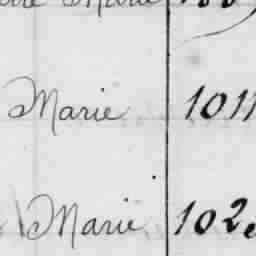 Marie
Marie 1011
Marie 102